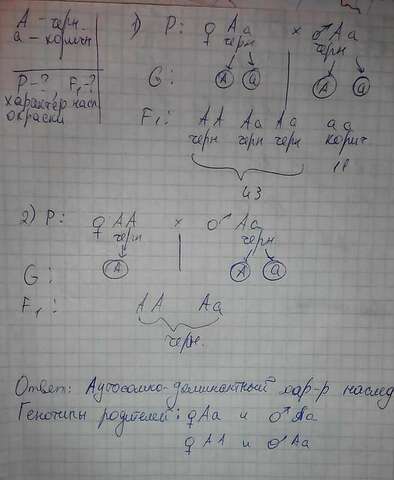 А - черн.
а - коричн
P-? F₁-?
характер насл
окраски
1) P: ♀ Aa × ♂ Aa
черн черн
G: A a A a
F₁: AA Aa Aa aa
черн черн черн корич
43 11
2) P: ♀ AA × ♂ Aa
черн черн.
G: A A a
F₁: AA Aa
черн.
Ответ: Аутосомно-доминантный хар-р наслед
Генотипы родителей: ♀Aa и ♂Aa
♀AA и ♂Aa